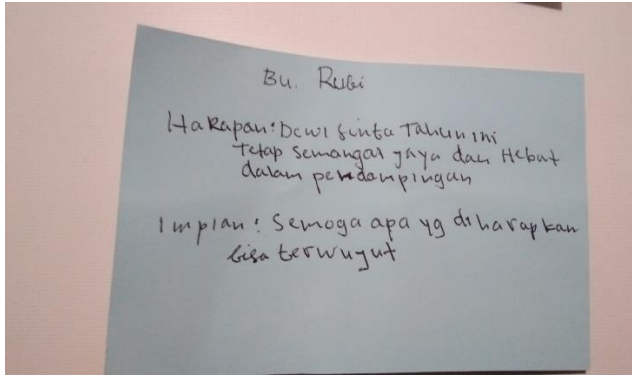 Bu. Rubi
Harapan: Dewi Sinta Tahun ini
Tetap Semangat jaya dan Hebat
dalam pendampingan
Impian: Semoga apa yg diharapkan
bisa terwuyut